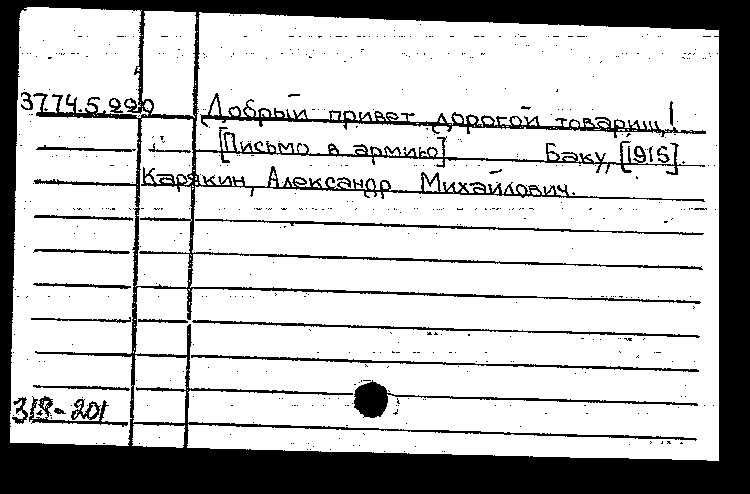 3774.5.220 Добрый привет дорогой товарищ!
[Письмо в армию] Баку, [1915].
Карякин, Александр Михайлович.
318-201